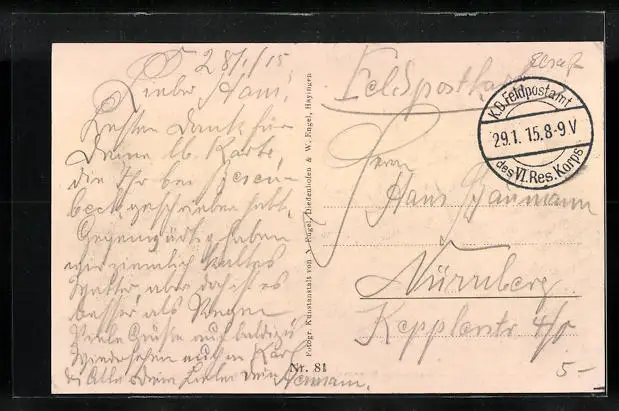 28/1/15
Lieber Hans,
Besten Dank für
Deine lb. Karte,
die Ihr bei
geschrieben habt.
Gegenwärtig haben
wir ziemlich kaltes
Wetter, aber das ist
besser als Regen
Viele Grüße auf baldiges
Wiedersehen auch an Karl
Dein Hermann.
Fotogr. Kunstanstalt von J. Engel, Diedenhofen & W. Engel, Hayingen
Nr. 81
Feldpostkarte
K.D. Feldpostamt
29.1.15.8-9V
des VI. Res. Korps
Herrn
Hans Baumann
Nürnberg
Kepplerstr
5-